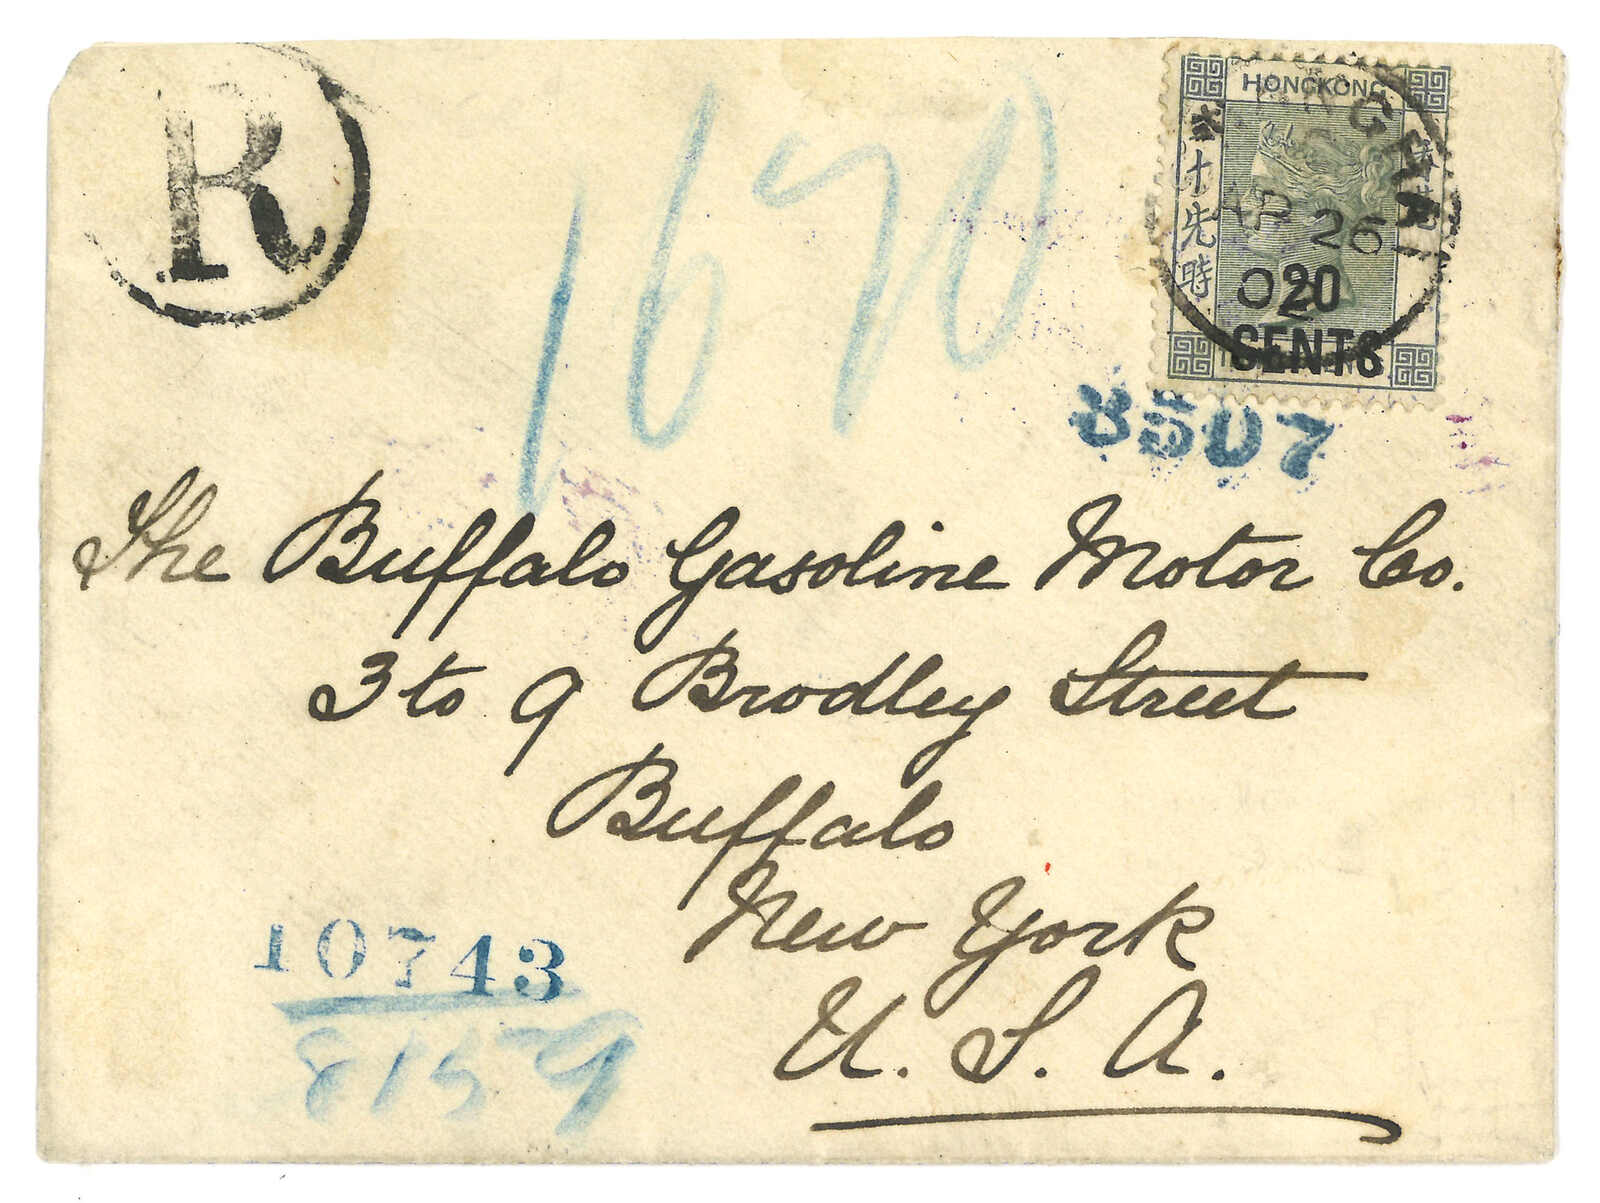 R
1670
HONGKONG
AP 26
20
CENTS
8507
The Buffalo Gasoline Motor Co.
3 to 9 Brodley Street
Buffalo
New York
U. S. A.
10743
8159